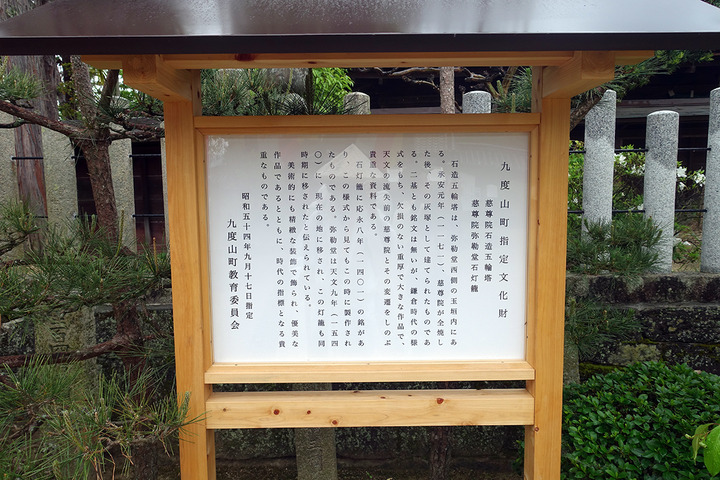 九度山町指定文化財
慈尊院石造五輪塔
慈尊院弥勒堂石灯籠
石造五輪塔は、弥勒堂西側の玉垣内にあ
る。承安元年(一一七一)、慈尊院が全焼し
た後、その灰塚として建てられたものであ
る。二基とも銘文は無いが、鎌倉時代の様
式をもち、欠損のない重厚で大きな作品で、
天文の流失前の慈尊院とその変遷をしのぶ
貴重な資料である。
石灯籠に応永八年(一四〇一)の銘があ
り、この様式から見てもこの時に製作され
たものである。弥勒堂は天文九年(一五四
〇)に、現在の地に移され、この灯籠も同
時期に移されたと伝えられている。
美術的にも精緻な装飾で飾られ、優美な
作品であるとともに、時代の指標となる貴
重なものである。
昭和五十四年九月十七日指定
九度山町教育委員会